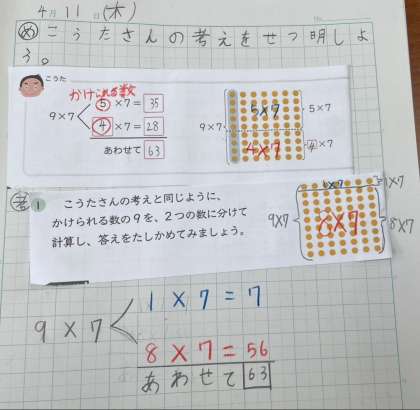 4月11日(木)
め こうたさんの考えをせつ明しよ
う。
こうた
かけられる数
9×7 5×7=35
4×7=28
あわせて 63
5×7 5×7
9×7
4×7 4×7
考 1 こうたさんの考えと同じように、
かけられる数の9を、2つの数に分けて
計算し、答えをたしかめてみましょう。
1×7 1×7
9×7 8×7 8×7
9×7 1×7=7
8×7=56
あわせて 63